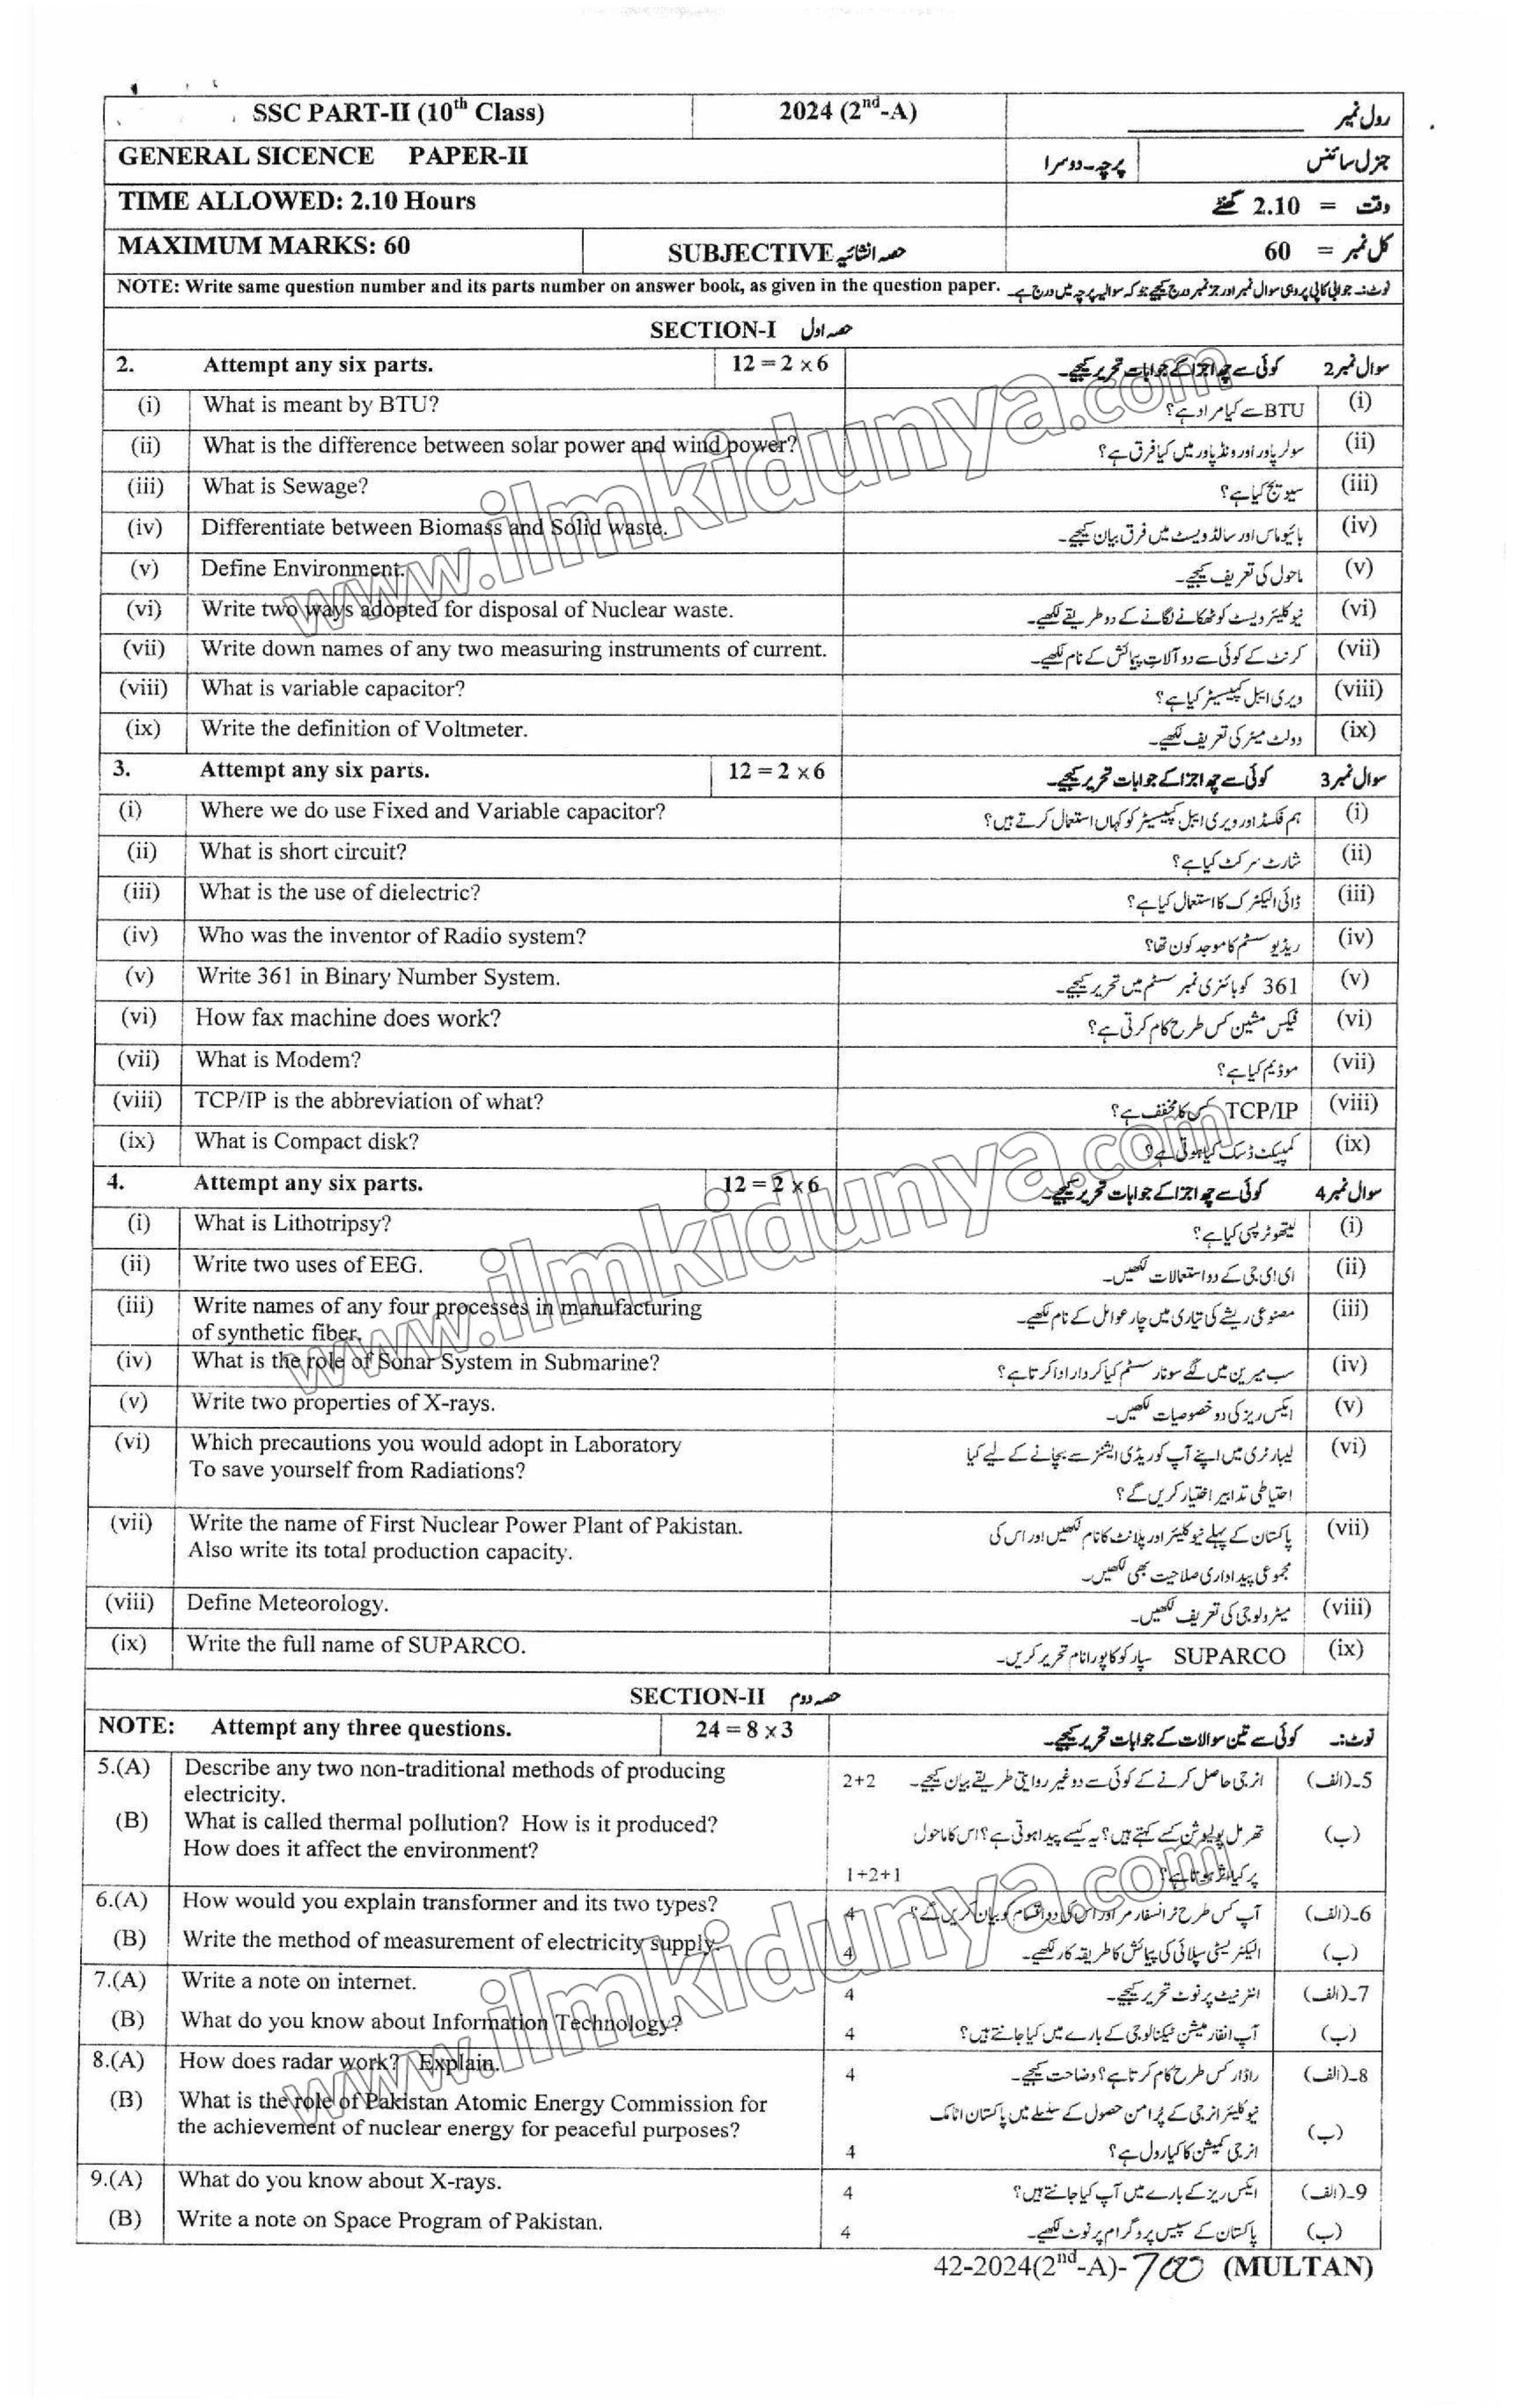 SSC PART-II (10th Class) 2024 (2nd-A) رول نمبر
GENERAL SICENCE PAPER-II پرچہ۔دوسرا جنرل سائنس
TIME ALLOWED: 2.10 Hours وقت = 2.10 گھنٹے
MAXIMUM MARKS: 60 SUBJECTIVE حصہ انشائیہ کل نمبر = 60
NOTE: Write same question number and its parts number on answer book, as given in the question paper. نوٹ:۔ جوابی کاپی پر وہی سوال نمبر اور جز نمبر درج کیجیے جو کہ سوالیہ پرچہ میں درج ہے۔
SECTION-I حصہ اول
2. Attempt any six parts. 12 = 2 × 6 کوئی سے چھ اجزا کے جوابات تحریر کیجیے۔ سوال نمبر 2
(i) What is meant by BTU? BTU سے کیا مراد ہے؟ (i)
(ii) What is the difference between solar power and wind power? سولر پاور اور ونڈ پاور میں کیا فرق ہے؟ (ii)
(iii) What is Sewage? سیویج کیا ہے؟ (iii)
(iv) Differentiate between Biomass and Solid waste. بائیوماس اور سالڈ ویسٹ میں فرق بیان کیجیے۔ (iv)
(v) Define Environment. ماحول کی تعریف کیجیے۔ (v)
(vi) Write two ways adopted for disposal of Nuclear waste. نیوکلیئر ویسٹ کو ٹھکانے لگانے کے دو طریقے لکھیے۔ (vi)
(vii) Write down names of any two measuring instruments of current. کرنٹ کے کوئی سے دو آلات پیمائش کے نام لکھیے۔ (vii)
(viii) What is variable capacitor? ویری ایبل کپیسیٹر کیا ہے؟ (viii)
(ix) Write the definition of Voltmeter. وولٹ میٹر کی تعریف لکھیے۔ (ix)
3. Attempt any six parts. 12 = 2 × 6 کوئی سے چھ اجزا کے جوابات تحریر کیجیے۔ سوال نمبر 3
(i) Where we do use Fixed and Variable capacitor? ہم فکسڈ اور ویری ایبل کپیسیٹر کو کہاں استعمال کرتے ہیں؟ (i)
(ii) What is short circuit? شارٹ سرکٹ کیا ہے؟ (ii)
(iii) What is the use of dielectric? ڈائی الیکٹرک کا استعمال کیا ہے؟ (iii)
(iv) Who was the inventor of Radio system? ریڈیو سسٹم کا موجد کون تھا؟ (iv)
(v) Write 361 in Binary Number System. 361 کو بائنری نمبر سسٹم میں تحریر کیجیے۔ (v)
(vi) How fax machine does work? فیکس مشین کس طرح کام کرتی ہے؟ (vi)
(vii) What is Modem? موڈیم کیا ہے؟ (vii)
(viii) TCP/IP is the abbreviation of what? TCP/IP کس کا مخفف ہے؟ (viii)
(ix) What is Compact disk? کمپیکٹ ڈسک کیا ہوتی ہے؟ (ix)
4. Attempt any six parts. 12 = 2 × 6 کوئی سے چھ اجزا کے جوابات تحریر کیجیے۔ سوال نمبر 4
(i) What is Lithotripsy? لیتھوٹرپسی کیا ہے؟ (i)
(ii) Write two uses of EEG. ای ای جی کے دو استعمالات لکھیں۔ (ii)
(iii) Write names of any four processes in manufacturing مصنوعی ریشے کی تیاری میں چار عوامل کے نام لکھیے۔ (iii)
of synthetic fiber.
(iv) What is the role of Sonar System in Submarine? سب میرین میں لگے سونار سسٹم کیا کردار ادا کرتا ہے؟ (iv)
(v) Write two properties of X-rays. ایکس ریز کی دو خصوصیات لکھیں۔ (v)
(vi) Which precautions you would adopt in Laboratory لیبارٹری میں اپنے آپ کو ریڈی ایشنز سے بچانے کے لیے کیا (vi)
To save yourself from Radiations? احتیاطی تدابیر اختیار کریں گے؟
(vii) Write the name of First Nuclear Power Plant of Pakistan. پاکستان کے پہلے نیوکلیئر اور پلانٹ کا نام لکھیں اور اس کی (vii)
Also write its total production capacity. مجموعی پیداواری صلاحیت بھی لکھیں۔
(viii) Define Meteorology. میٹرولوجی کی تعریف لکھیں۔ (viii)
(ix) Write the full name of SUPARCO. SUPARCO سپارکو کا پورا نام تحریر کریں۔ (ix)
SECTION-II حصہ دوم
NOTE: Attempt any three questions. 24 = 8 × 3 کوئی سے تین سوالات کے جوابات تحریر کیجیے۔ نوٹ:۔
5.(A) Describe any two non-traditional methods of producing 2+2 انرجی حاصل کرنے کے کوئی سے دو غیر روایتی طریقے بیان کیجیے۔ 5۔(الف)
electricity.
(B) What is called thermal pollution? How is it produced? تھرمل پولیوشن کسے کہتے ہیں؟ یہ کیسے پیدا ہوتی ہے؟ اس کا ماحول (ب)
How does it affect the environment? 1+2+1 پر کیا اثر ہوتا ہے؟
6.(A) How would you explain transformer and its two types? 4 آپ کس طرح ٹرانسفارمر اور اس کی دو اقسام کو بیان کریں گے؟ 6۔(الف)
(B) Write the method of measurement of electricity supply. 4 الیکٹریسٹی سپلائی کی پیمائش کا طریقہ کار لکھیے۔ (ب)
7.(A) Write a note on internet. 4 انٹرنیٹ پر نوٹ تحریر کیجیے۔ 7۔(الف)
(B) What do you know about Information Technology? 4 آپ انفارمیشن ٹیکنالوجی کے بارے میں کیا جانتے ہیں؟ (ب)
8.(A) How does radar work? Explain. 4 راڈار کس طرح کام کرتا ہے؟ وضاحت کیجیے۔ 8۔(الف)
(B) What is the role of Pakistan Atomic Energy Commission for نیوکلیئر انرجی کے پُرامن حصول کے سلسلے میں پاکستان اٹامک (ب)
the achievement of nuclear energy for peaceful purposes? 4 انرجی کمیشن کا کیا رول ہے؟
9.(A) What do you know about X-rays. 4 ایکس ریز کے بارے میں آپ کیا جانتے ہیں؟ 9۔(الف)
(B) Write a note on Space Program of Pakistan. 4 پاکستان کے سپیس پروگرام پر نوٹ لکھیے۔ (ب)
42-2024(2nd-A)-700 (MULTAN)
www.ilmkidunya.com
www.ilmkidunya.com
www.ilmkidunya.com